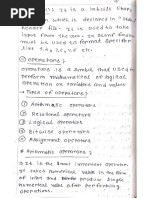 ): It is a inbuilt
tion which is declared in "std
header file. It is used to take
input from the user. In scanf function
must be used different specifier
like %d, %c, %f etc.
① operations ;
operations is a symbol that used to
perform mathematical or logical
operation on variables and value
→ Types of operations ;
① Arithmetic operators
② Relational operators
③ Logical operators
④ Bitwise operators
⑤ Assignment operators
# Arithmetic operators ;
It is the most important operator
of takes numerical value in the form
of input and produce single
numerical value after performing
operations.